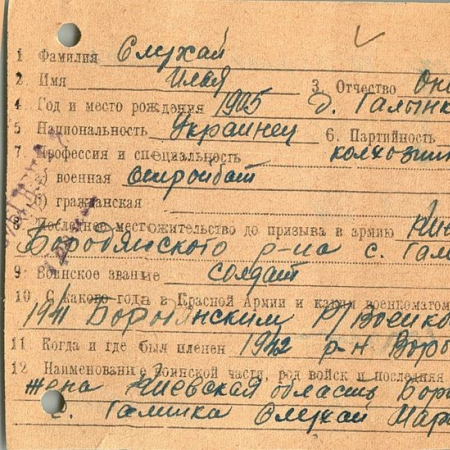 1. Фамилия Слухай
2. Имя Илья 3. Отчество
4. Год и место рождения 1905 д. Галинк
5. Национальность Украинец 6. Партийность
7. Профессия и специальность колхозник
а) военная Стройбат
б) гражданская
8. Последнее местожительство до призыва в армию Ки
Бородянского р-на с. Гал
9. Воинское звание солдат
10. С какого года в Красной Армии и каким военкоматом
1941 Бородянским Р/Военко
11. Когда и где был пленен 1942 р-н Воро
12. Наименование воинской части, род войск и последняя
жена Киевская область Бор
с. Галинка Слухай Мар